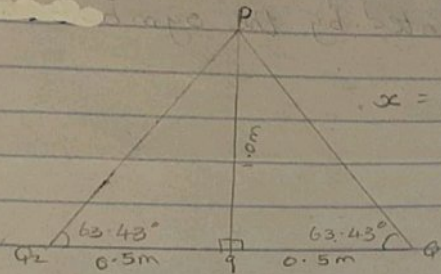 P
x =
63.43° 63.43°
Q₂ 0.5m q 0.5m Q